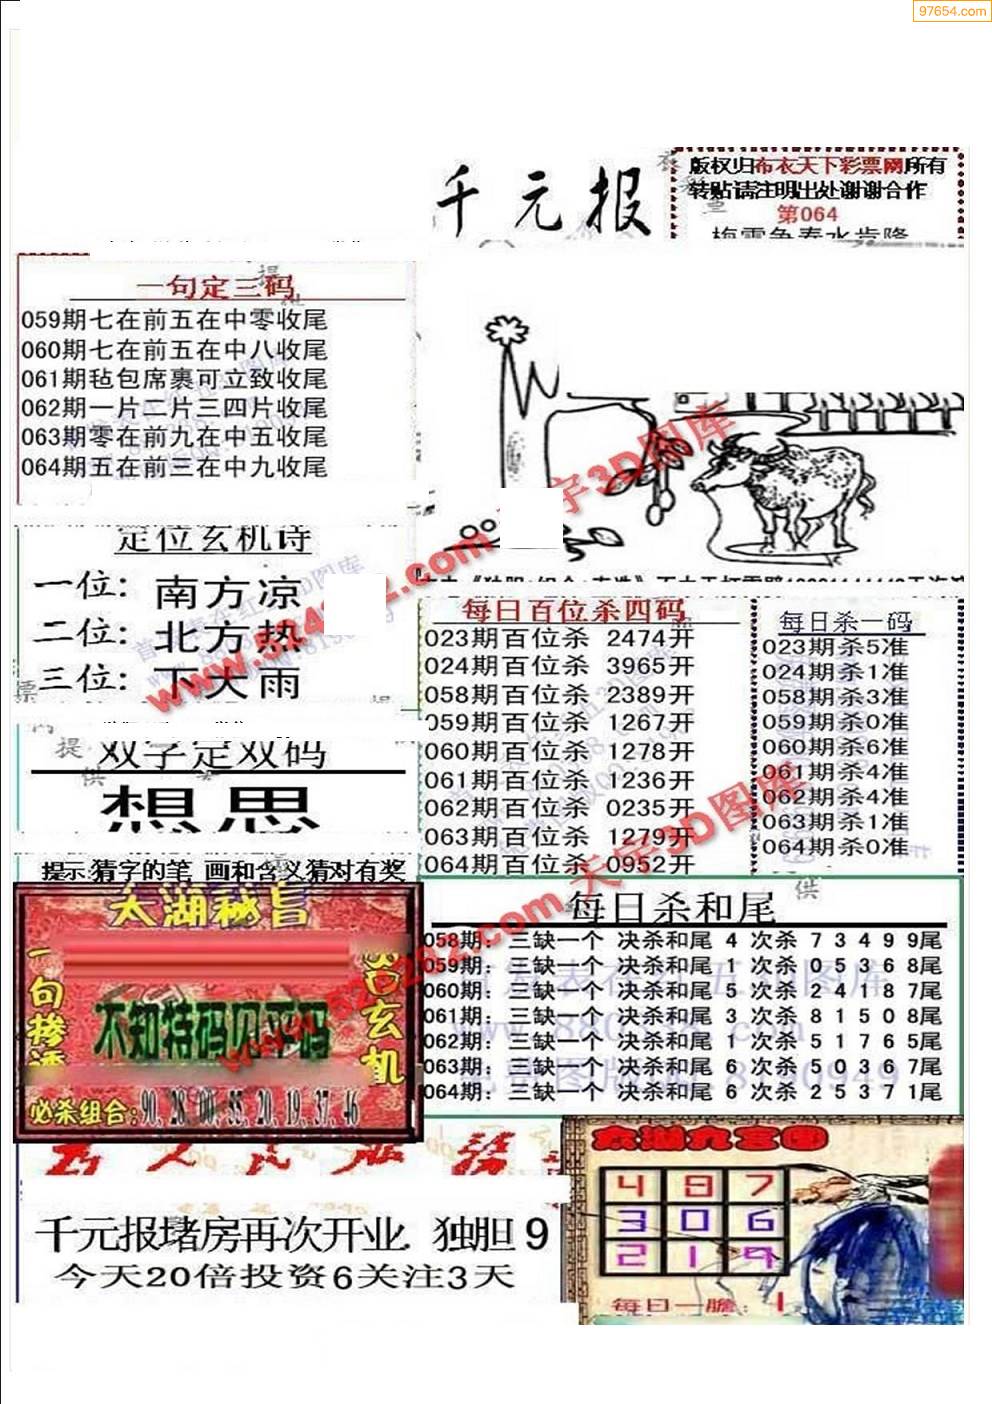 97654.com
千元报
版权归布衣天下彩票网所有
转贴请注明出处谢谢合作
第064
一句定三码
059期七在前五在中零收尾
060期七在前五在中八收尾
061期毡包席裹可立致收尾
062期一片二片三四片收尾
063期零在前九在中五收尾
064期五在前三在中九收尾
定位玄机诗
一位: 南方凉
二位: 北方热
三位: 下大雨
双字定双码
想思
提示:猜字的笔 画和含义猜对有奖
每日百位杀四码
023期百位杀 2474开
024期百位杀 3965开
058期百位杀 2389开
059期百位杀 1267开
060期百位杀 1278开
061期百位杀 1236开
062期百位杀 0235开
063期百位杀 1279开
064期百位杀 0952开
每日杀一码
023期杀5准
024期杀1准
058期杀3准
059期杀0准
060期杀6准
061期杀4准
062期杀4准
063期杀1准
064期杀0准
太湖秘旨
不知特码见平码
必杀组合:90,28,00,55,20,19,37,46
每日杀和尾
058期: 三缺一个 决杀和尾 4 次杀 7 3 4 9 9尾
059期: 三缺一个 决杀和尾 1 次杀 0 5 3 6 8尾
060期: 三缺一个 决杀和尾 5 次杀 2 4 1 8 7尾
061期: 三缺一个 决杀和尾 3 次杀 8 1 5 0 8尾
062期: 三缺一个 决杀和尾 1 次杀 5 1 7 6 5尾
063期: 三缺一个 决杀和尾 6 次杀 5 0 3 6 7尾
064期: 三缺一个 决杀和尾 6 次杀 2 5 3 7 1尾
千元报堵房再次开业 独胆 9
今天20倍投资6关注3天
太湖九宫图
4 9 7
3 0 6
2 1 9
每日一胆: 1
www.524202.com 天宇3D图库
www.524202.com 天宇3D图库